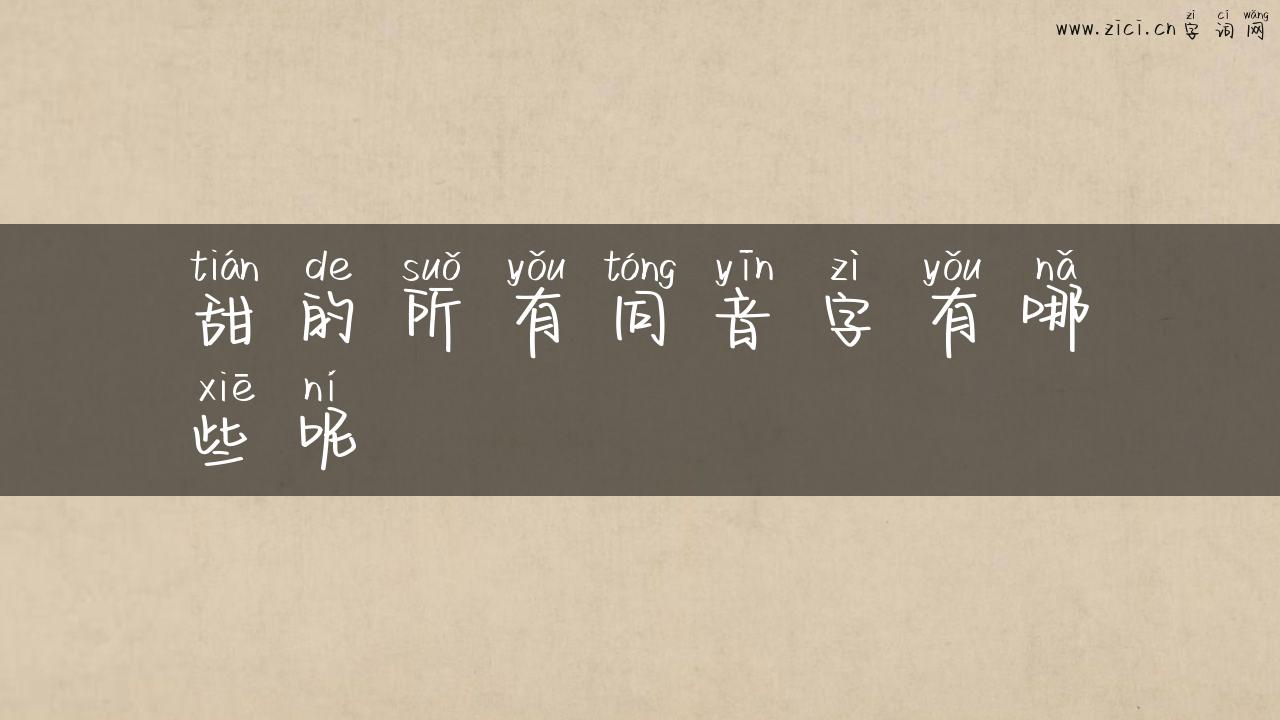 zì cí wǎng
www.zici.cn字词网
tián de suǒ yǒu tóng yīn zì yǒu nǎ
甜的所有同音字有哪
xiē ní
些呢